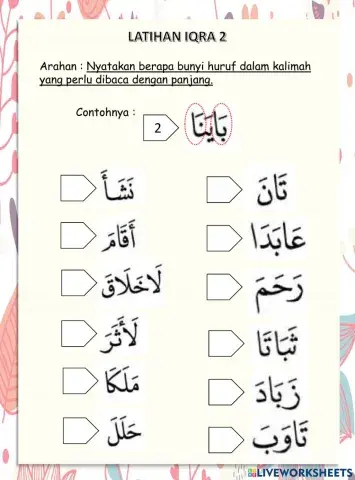 LATIHAN IQRA 2
Arahan : Nyatakan berapa bunyi huruf dalam kalimah
yang perlu dibaca dengan panjang.
Contohnya : 2 بَايَنَا
نَشَأَ تَانَ
أَقَامَ عَابَدَا
لَاخَلَاقَ رَحَمَ
لَأَثَرَ ثَبَاتَا
مَلَكَا زَبَادَ
حَلَلَ تَاوَبَ
LIVEWORKSHEETS